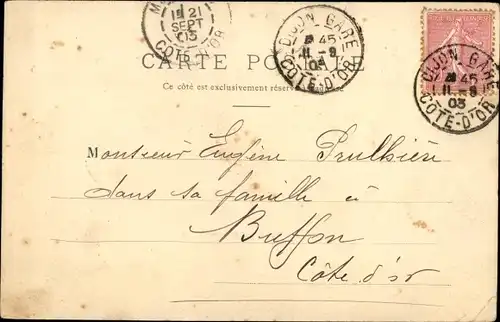 12
SEPT
03
CÔTE-D'OR
DIJON GARE
45
11-9
03
CÔTE-D'OR
DIJON GARE
45
11-9
03
CÔTE-D'OR
CARTE POSTALE
Ce côté est exclusivement réservé
Monsieur Eugène Prulhière
dans sa famille à
Buffon
Côte d'or